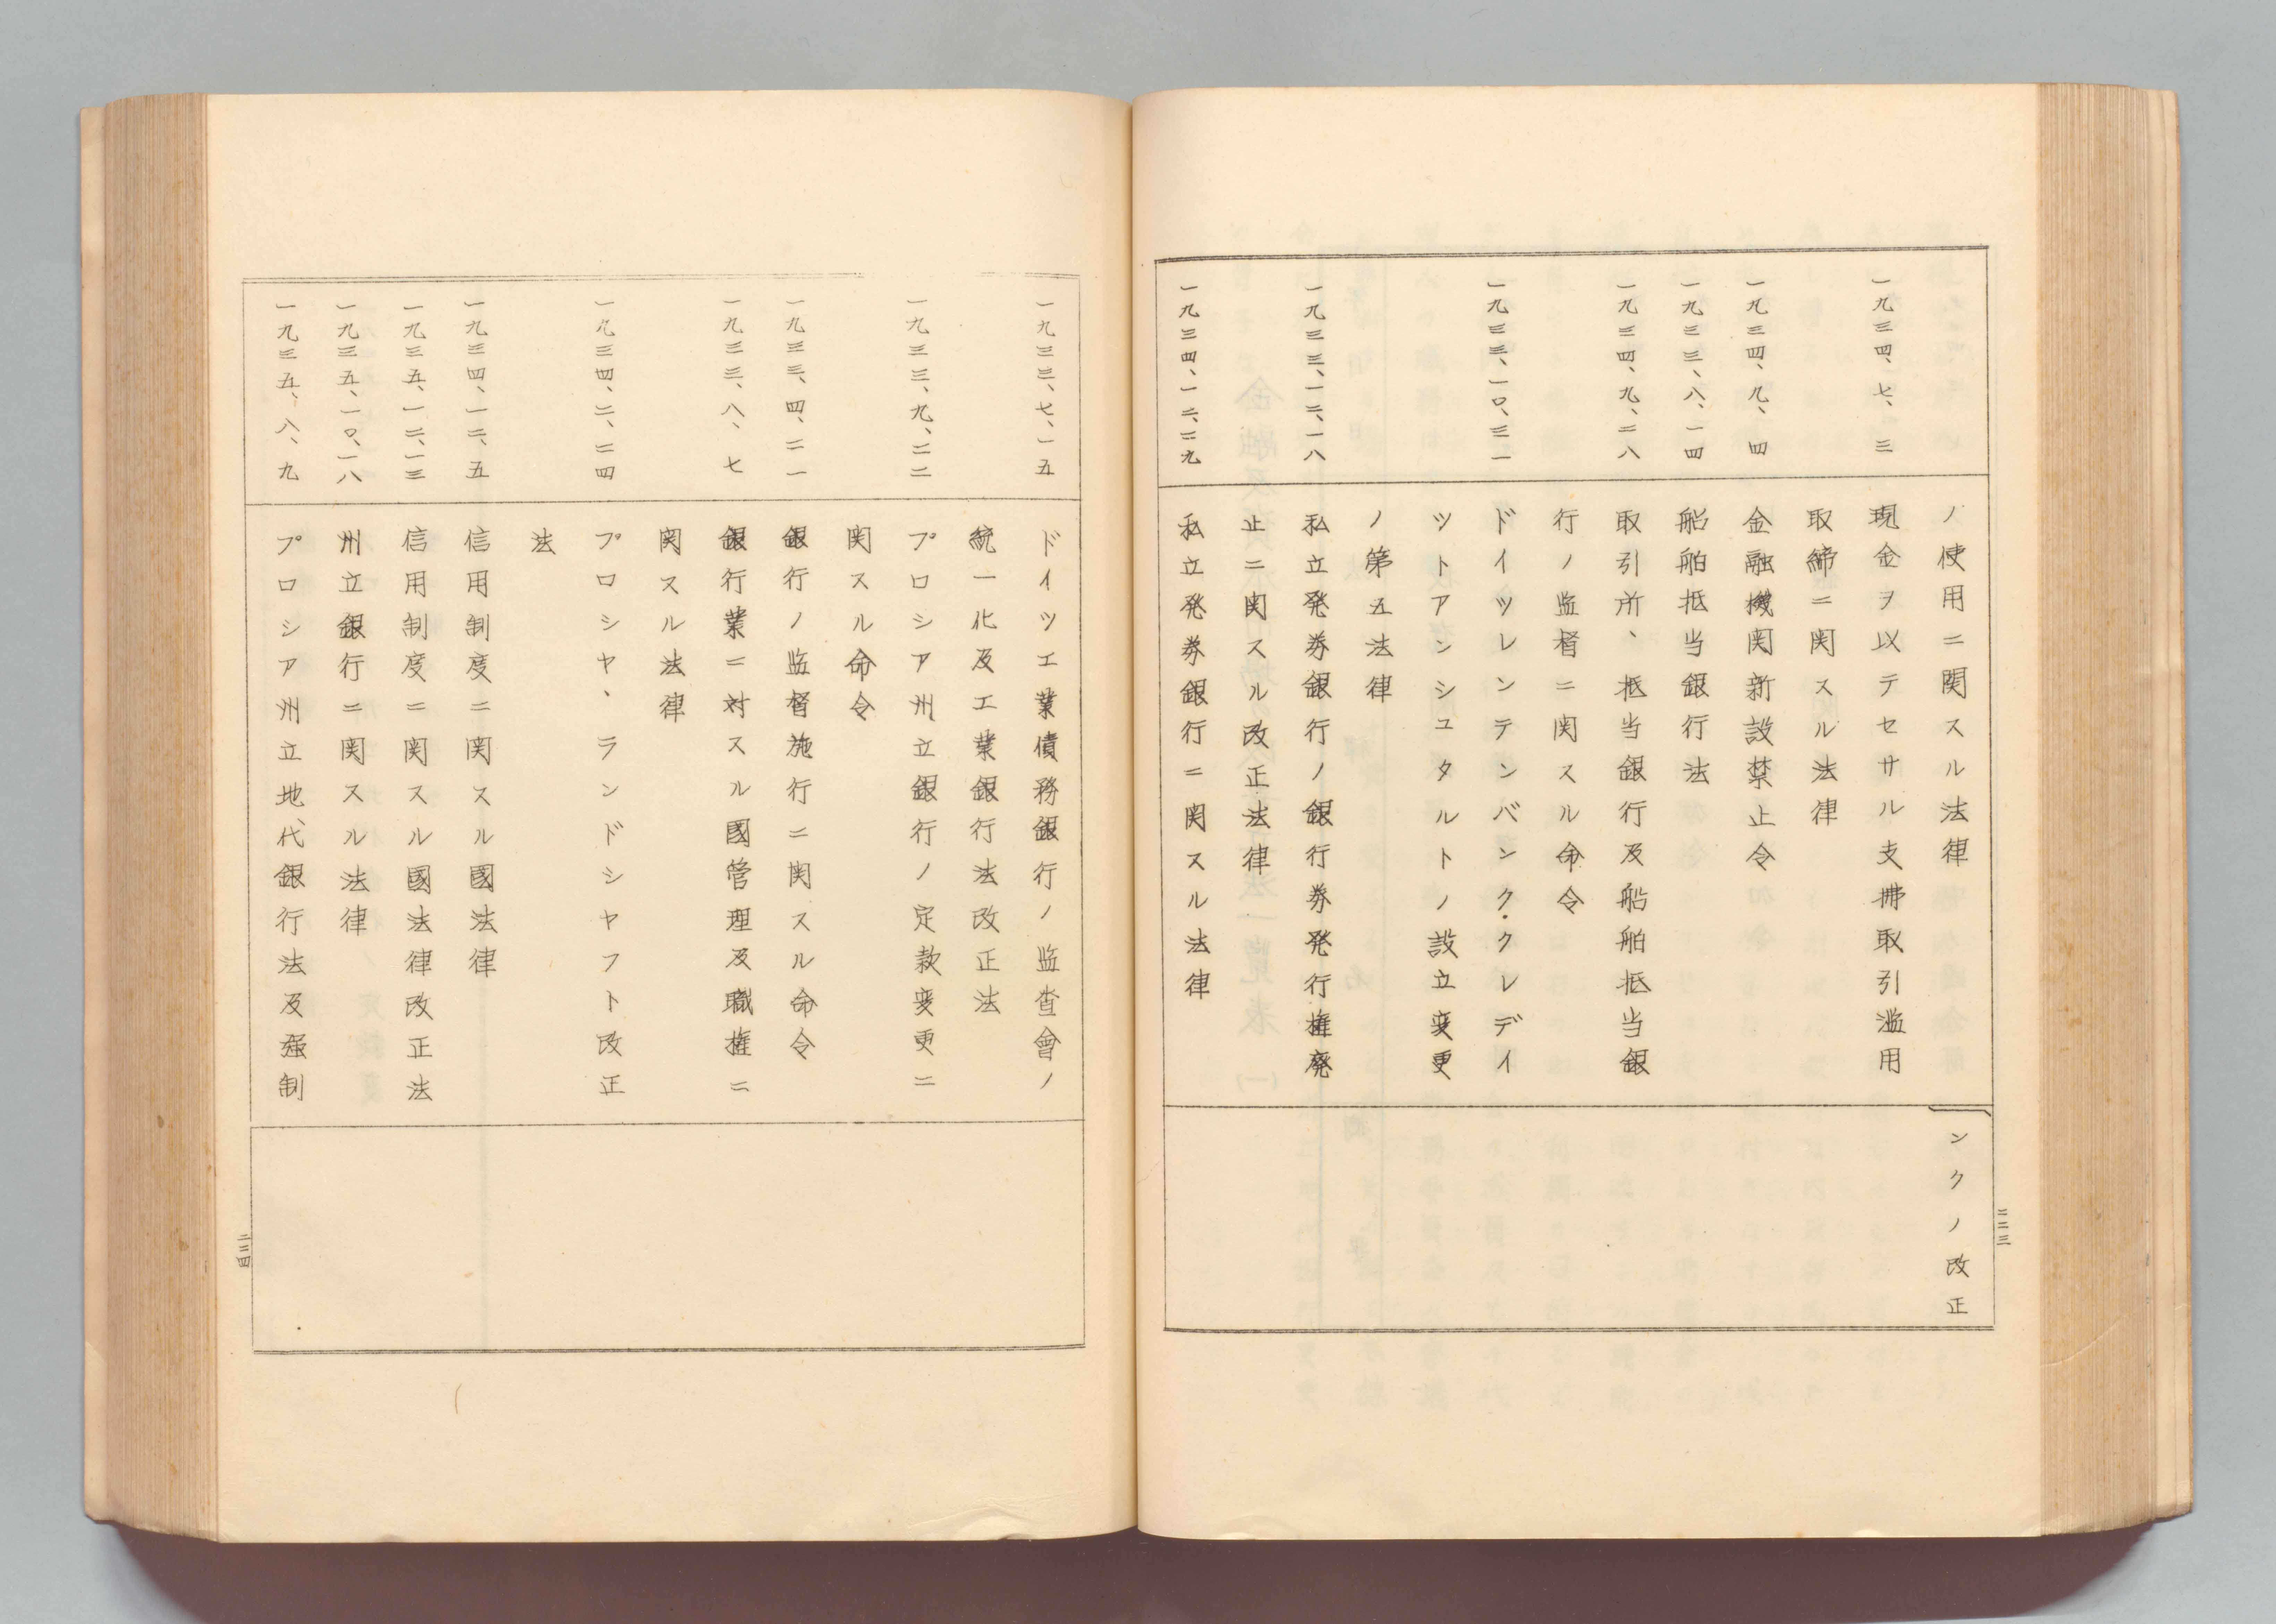 ノ使用ニ関スル法律
ンクノ改正
一九三四、七、三
現金ヲ以テセサル支拂取引濫用
取締ニ関スル法律
一九三四、九、四
金融機関新設禁止令
一九三三、八、一四
船舶抵当銀行法
一九三四、九、二八
取引所、抵当銀行及船舶抵当銀
行ノ監督ニ関スル命令
一九三三、一〇、三一
ドイツレンテンバンク・クレデイ
ツトアンシュタルトノ設立変更
ノ第五法律
一九三三、一二、一八
私立発券銀行ノ銀行券発行権廃
止ニ関スル改正法律
一九三四、一二、二九
私立発券銀行ニ関スル法律
二二三
一九三三、七、一五
ドイツエ業債務銀行ノ監査會ノ
統一化及エ業銀行法改正法
一九三三、九、二二
プロシア州立銀行ノ定款変更ニ
関スル命令
一九三三、四、二一
銀行ノ監督施行ニ関スル命令
一九三三、八、七
銀行業ニ対スル國管理及職権ニ
関スル法律
一九三四、二、二四
プロシヤ、ランドシヤフト改正
法
一九三四、一二、五
信用制度ニ関スル國法律
一九三五、一二、一三
信用制度ニ関スル國法律改正法
一九三五、一〇、一八
州立銀行ニ関スル法律
一九三五、八、九
プロシア州立地代銀行法及强制
二二四